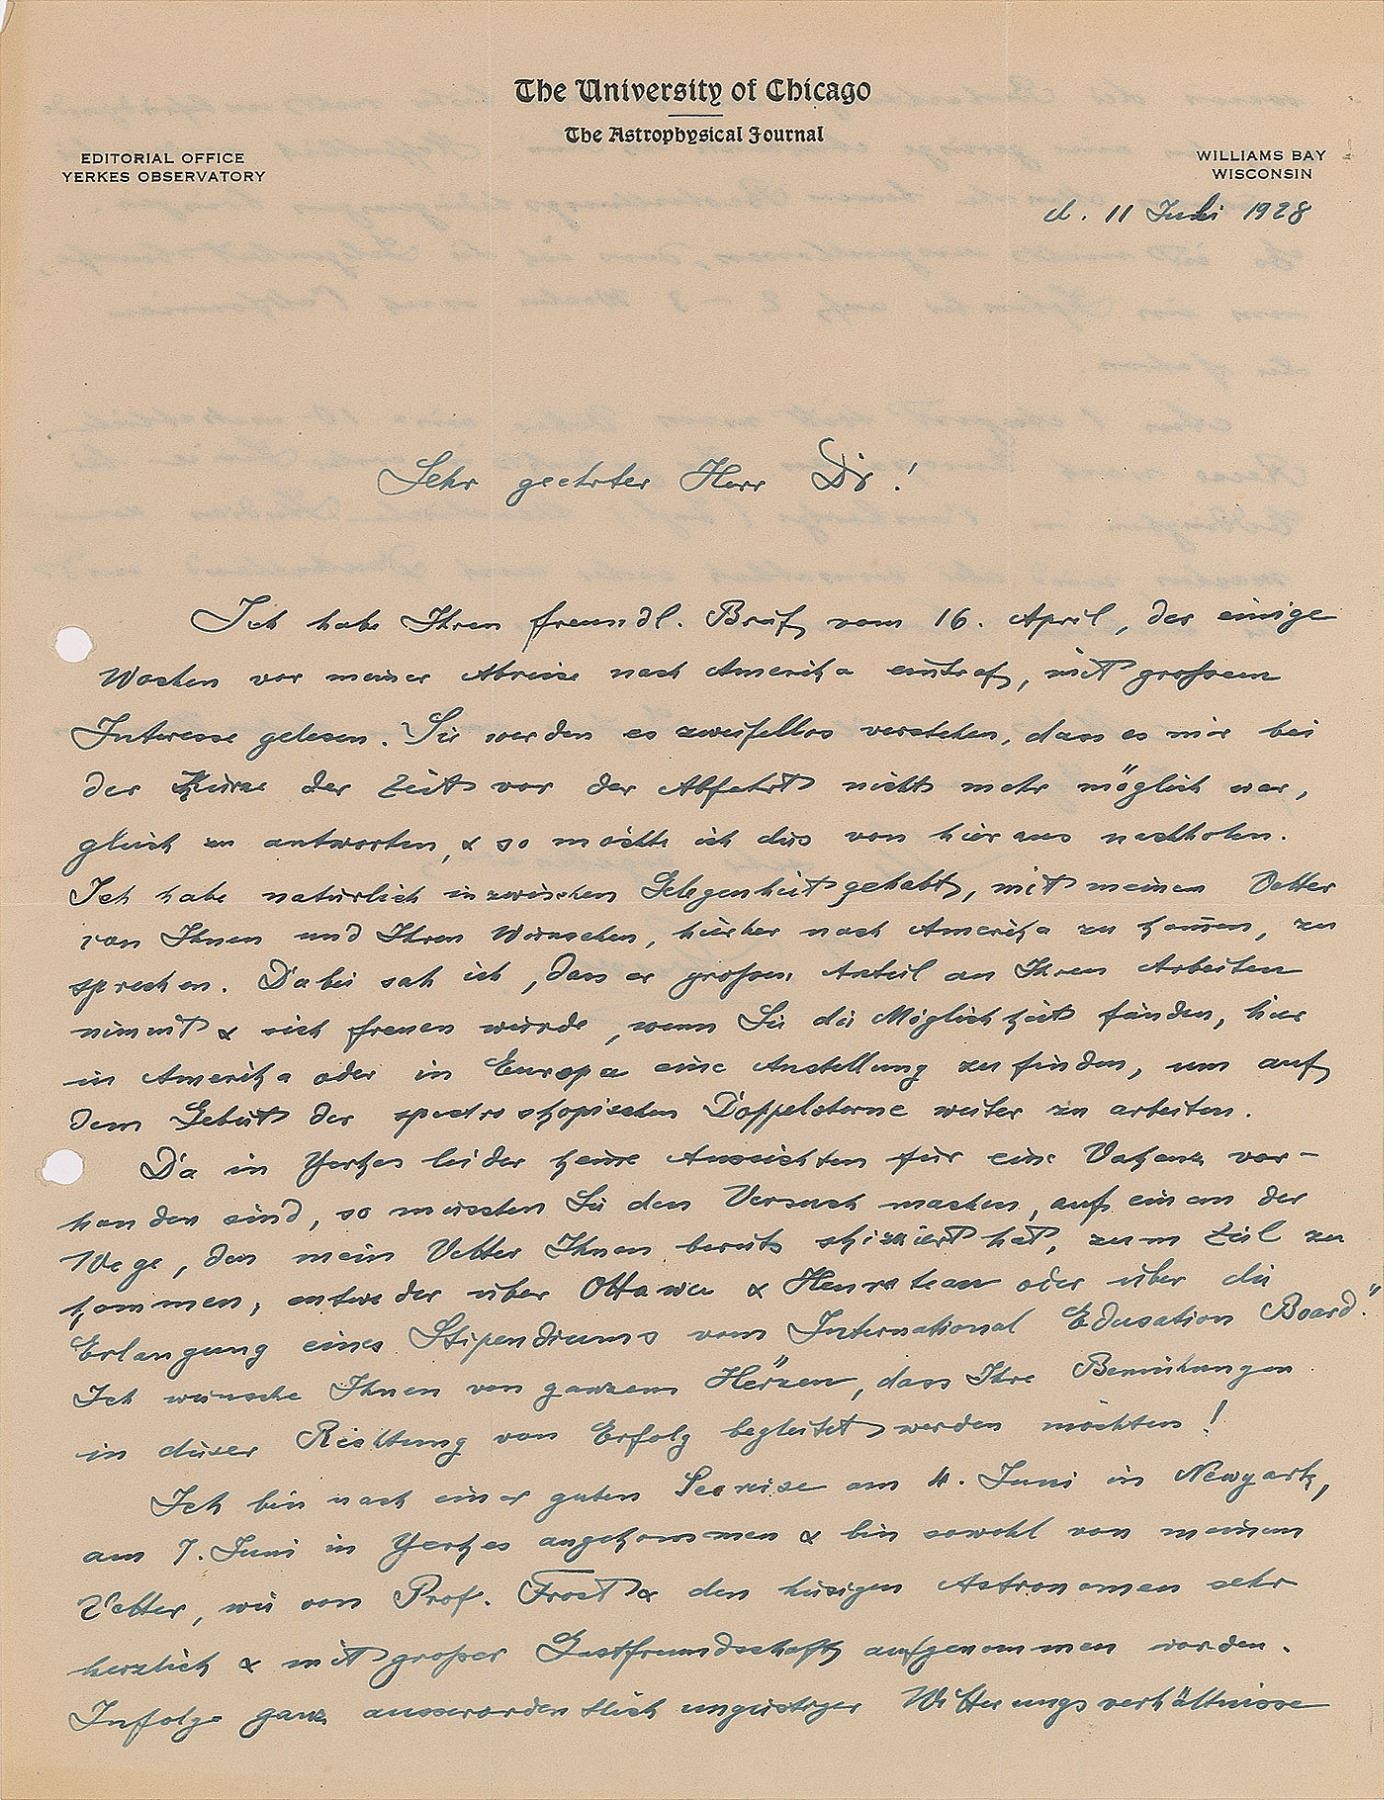 The University of Chicago
The Astrophysical Journal
EDITORIAL OFFICE
YERKES OBSERVATORY
WILLIAMS BAY
WISCONSIN
d. 11 Juli 1928
Sehr geehrter Herr Dr!
Ich habe Ihren freundl. Brief vom 16. April, der einige
Wochen vor meiner Abreise nach Amerika eintraf, mit grossem
Interesse gelesen. Sie werden es zweifellos verstehen, dass es mir bei
der Kürze der Zeit vor der Abfahrt nicht mehr möglich war,
gleich zu antworten, & so möchte ich dies von hier aus nachholen.
Ich habe natürlich inzwischen Gelegenheit gehabt, mit meinem Vetter
von Ihnen und Ihren Wünschen, hierher nach Amerika zu kom̅en, zu
sprechen. Dabei sah ich, dass er grossen Anteil an Ihren Arbeiten
nimmt & sich freuen würde, wenn Sie die Möglichkeit fänden, hier
in Amerika oder in Europa eine Anstellung zu finden, um auf
dem Gebiet der spectroskopischen Doppelsterne weiter zu arbeiten.
Da in Yerkes leider keine Aussichten für eine Vakanz vor-
handen sind, so müssten Sie den Versuch machen, auf einem der
Wege, den mein Vetter Ihnen bereits skizziert hat, zum Ziel zu
kommen, entweder über Ottawa & Henroteau oder über die
Erlangung eines Stipendiums vom International Education Board."
Ich wünsche Ihnen von ganzem Herzen, dass Ihre Bemühungen
in dieser Richtung von Erfolg begleitet werden möchten!
Ich bin nach einer guten Seereise am 4. Juni in Newyork,
am 7. Juni in Yerkes angekommen & bin sowohl von meinem
Vetter, wie von Prof. Frost & den hiesigen Astronomen sehr
herzlich & mit grosser Gastfreundschaft aufgenommen worden.
Infolge ganz ausserordentlich ungünstiger Witterungsverhältnisse